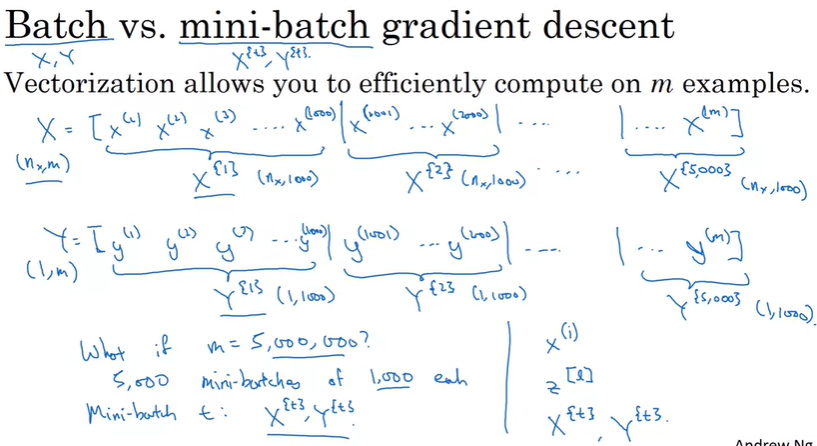 Batch vs. mini-batch gradient descent
X, Y X^{t}, Y^{t}.
Vectorization allows you to efficiently compute on m examples.
X = [x^(1) x^(2) x^(3) .... x^(1000) | x^(1001) ... x^(2000) | .... | .... x^(m)]
(n_x, m) X^{1} (n_x, 1000) X^{2} (n_x, 1000) .... X^{5,000} (n_x, 1000)
Y = [y^(1) y^(2) y^(3) ... y^(1000) | y^(1001) ... y^(2000) | .... | ... y^(m)]
(1, m) Y^{1} (1, 1000) Y^{2} (1, 1000) Y^{5,000} (1, 1000)
What if m = 5,000,000? x^(i)
5,000 mini-batches of 1,000 each z^[l]
Mini-batch t: X^{t}, Y^{t}. X^{t}, Y^{t}.
Andrew Ng